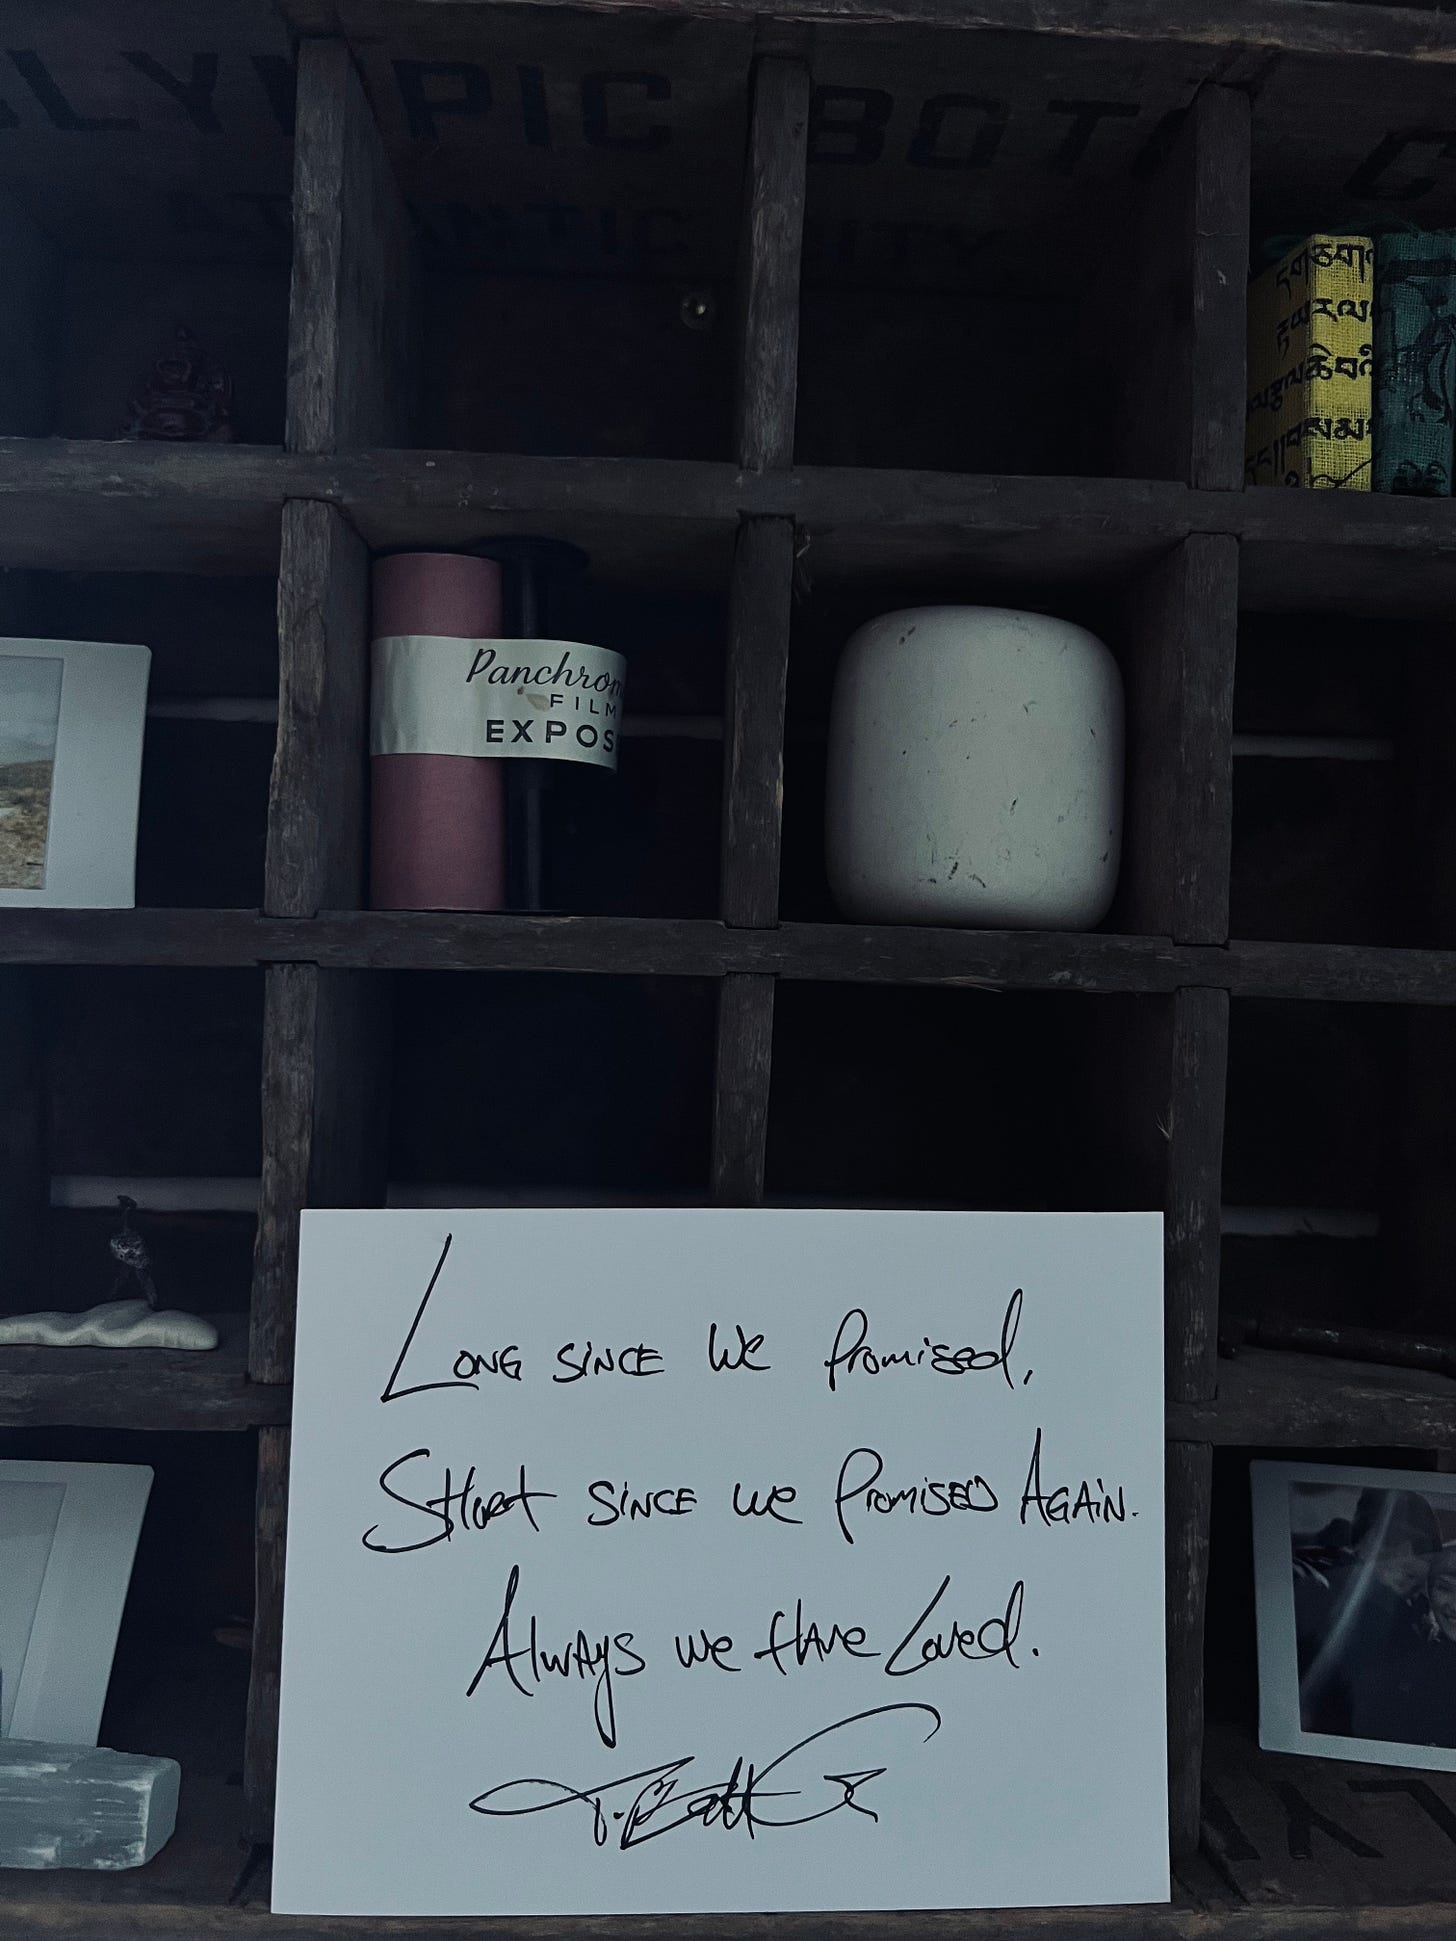 LYMPIC BOT
ATLANTIC CITY
Panchrom
FILM
EXPOS
LONG SINCE We Promised,
SHORT SINCE we PROMISED AGAIN.
Always we HAVE Loved.